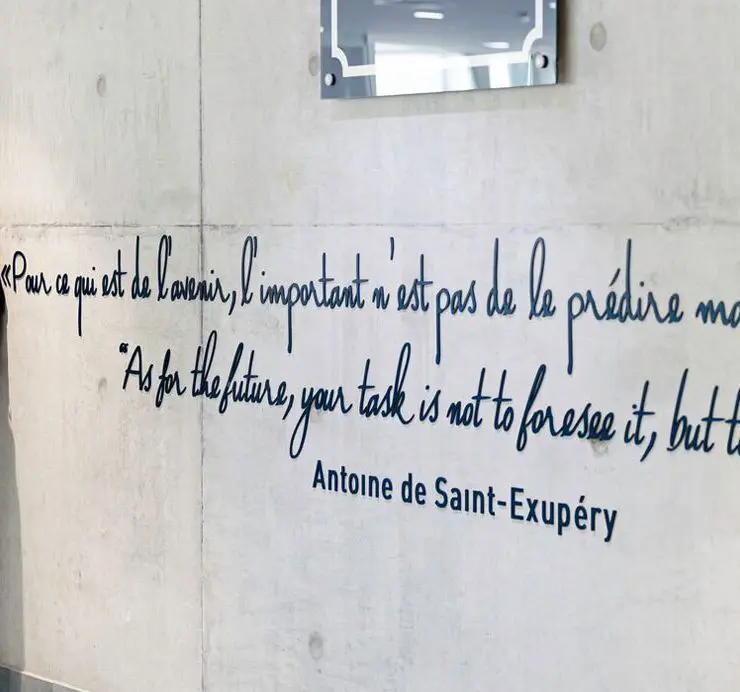 «Pour ce qui est de l'avenir, l'important n'est pas de le prédire
"As for the future, your task is not to foresee it, but
Antoine de Saint-Exupéry